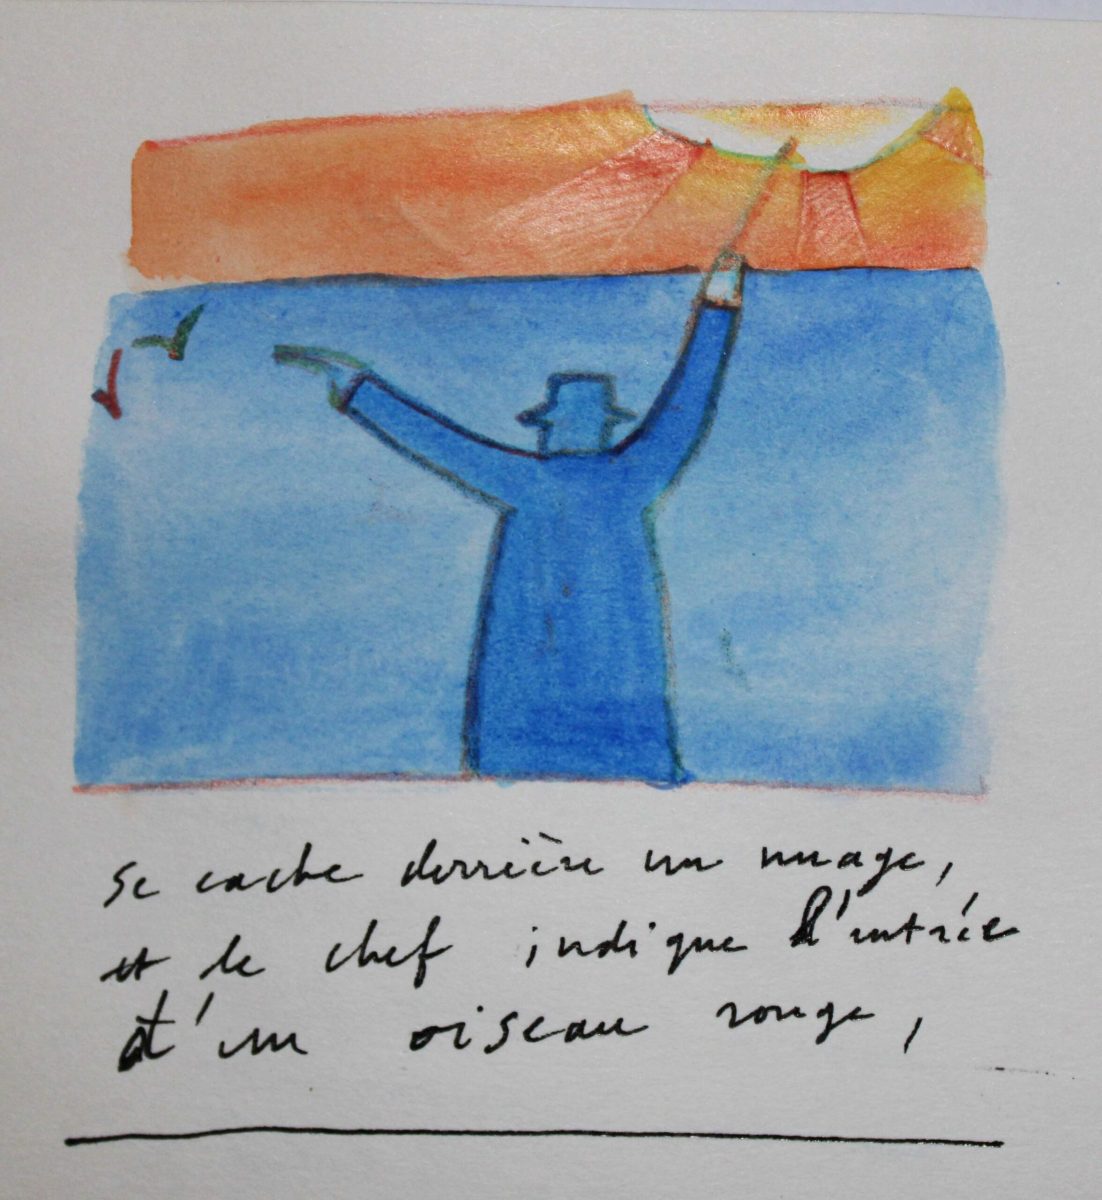 se cache derrière un nuage,
et le chef indique l'entrée
d'un oiseau rouge,